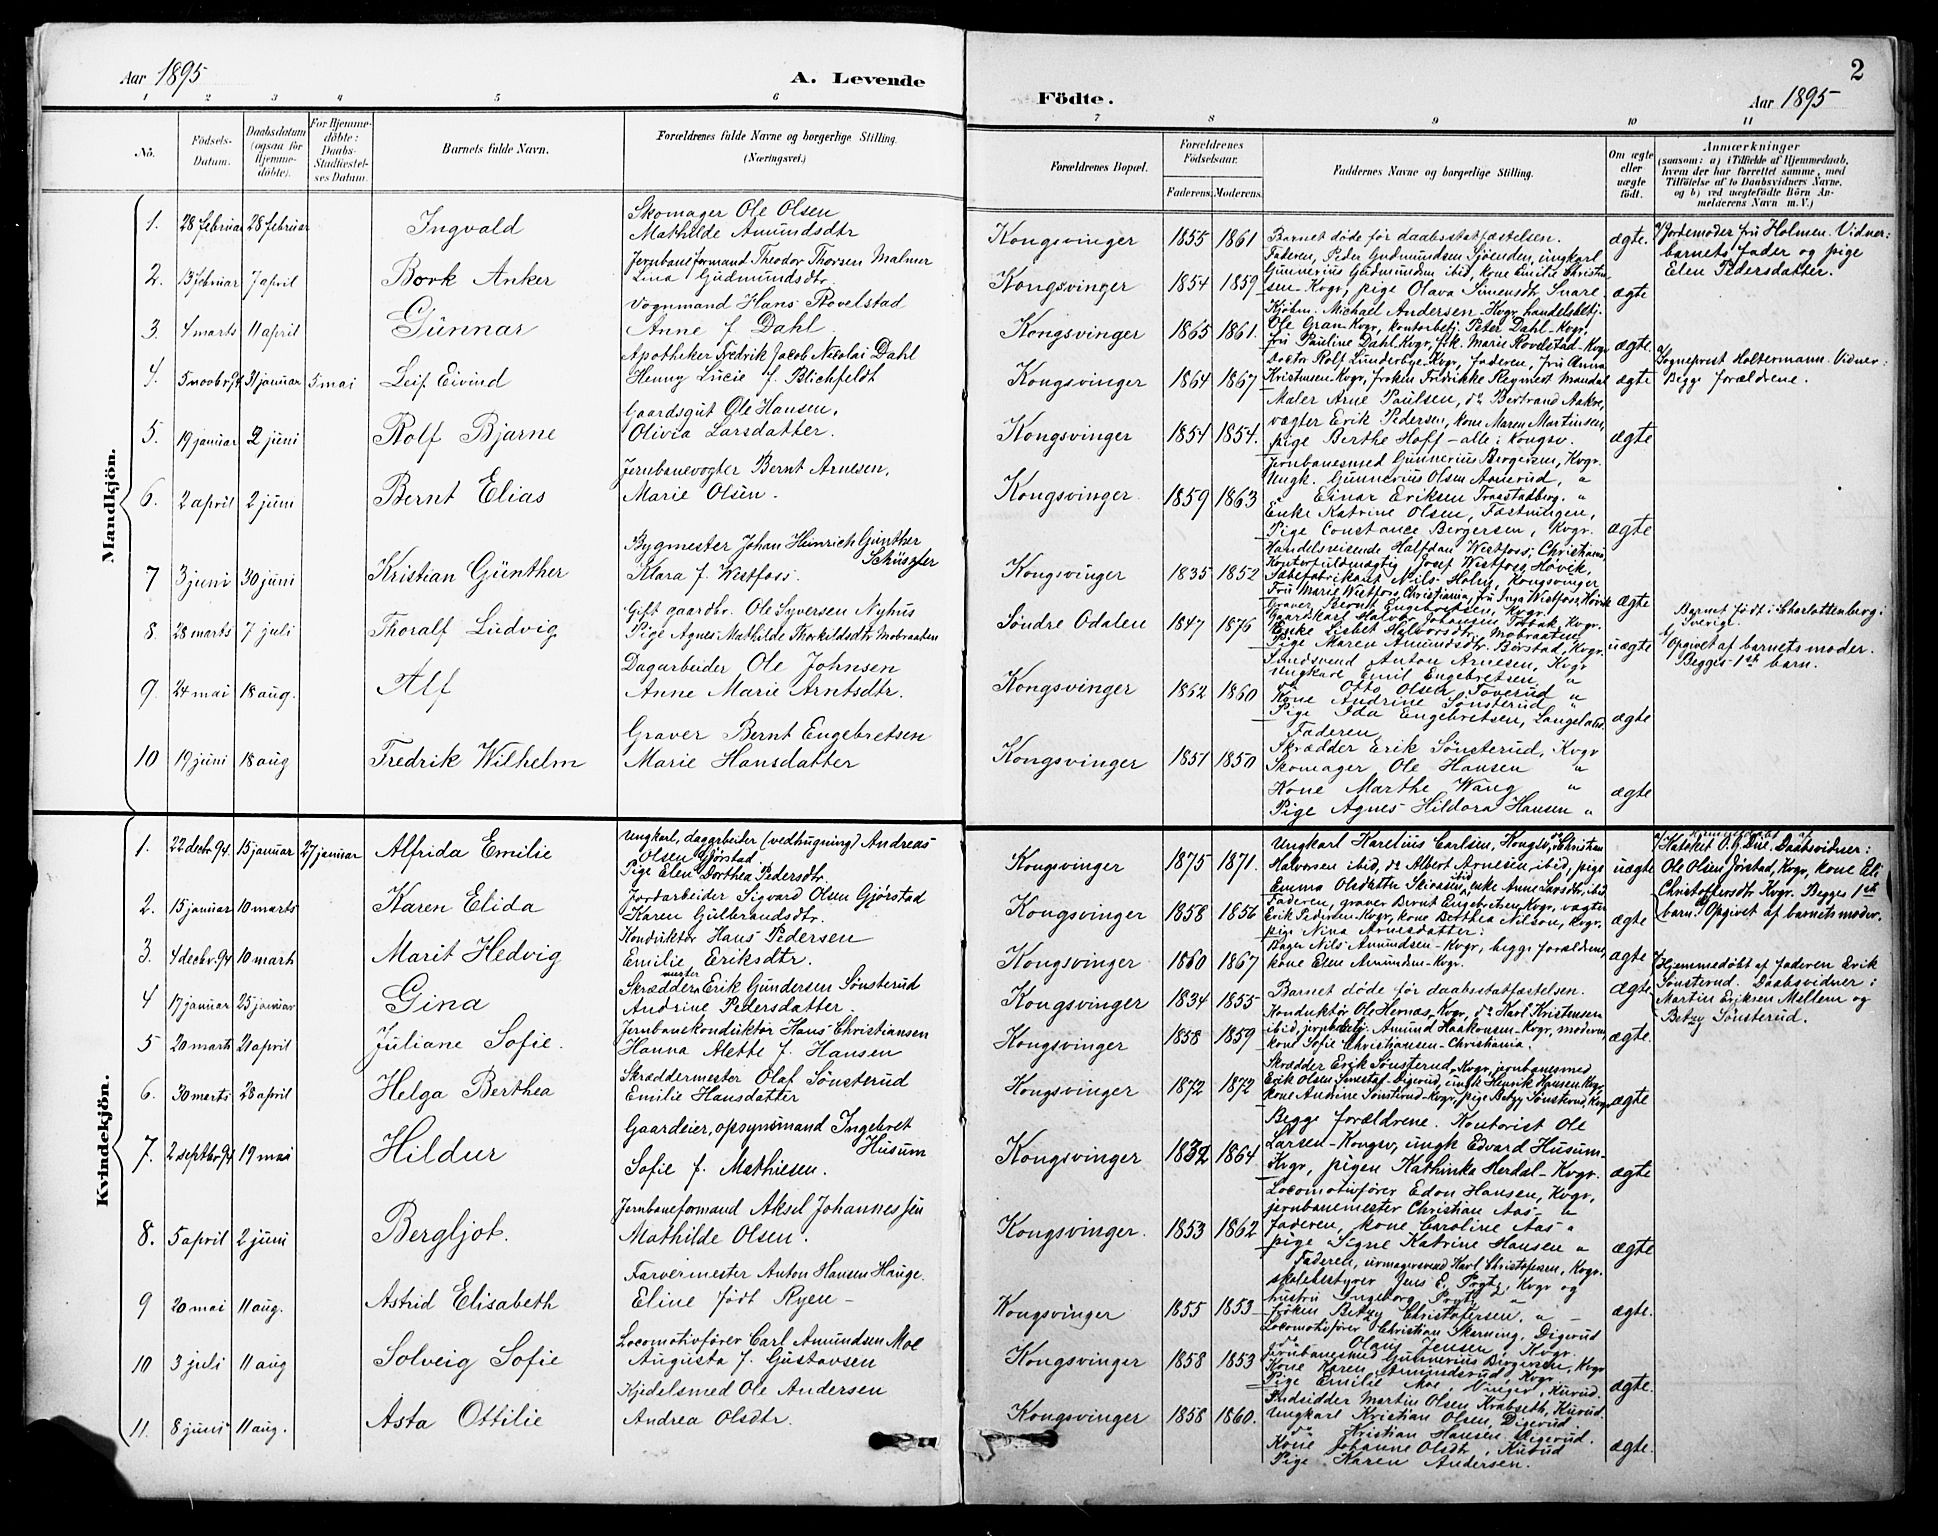 Aar 1895
A. Levende
Födte.
Aar 1895
2
1 2 3 4 5 6 7 8 9 10 11
No.
Födsels-Datum.
Daabsdatum (ogsaa for Hjemmedöbte).
For Hjemmedöbte: Daabs-Stadfæstelses Datum.
Barnets fulde Navn.
Forældrenes fulde Navne og borgerlige Stilling.
(Næringsvei.)
Forældrenes Bopæl.
Forældrenes Födselsaar.
Faderens. Moderens.
Faddernes Navne og borgerlige Stilling.
Om ægte eller uægte födt.
Anmærkninger
(saasom: a) i Tilfælde af Hjemmedaab, hvem der har forrettet samme, med Tilföielse af to Daabsvidners Navne, og b) ved uægtefödte Börn Anmelderens Navn m. V.)
Mandkjön.
1. 28 februar 28 februar Ingvald
Skomager Ole Olsen
Mathilde Amundsdtr
Kongsvinger 1855 1861
Barnet døde før daabsstatfæstelsen.
ægte.
Jordemoder fru Holmen. Vidner:
barnets fader og pige
Elen Pedersdatter.
2. 13 februar 7 april Bork Anker
Jernbaneformand Theodor Thorsen Malmer
Lina Gudmundsdtr.
Kongsvinger 1854 1859
Faderen, Peder Gudmundsen Sjøenden, ungkarl
Gunnerius Gudmundsen ibid, kone Emilie Christiansen Kvgr, pige Olava Simensdtr Snare
ægte
3. 4 marts 11 april Gunnar
Vognmand Hans Rovelstad
Anne f. Dahl.
Kongsvinger 1865 1861.
Kjøbm. Michael Andersen-Kvgr, handelsbetj.
Ole Gran-Kvgr, kontorbetj. Peter Dahl-Kvgr,
fru Pauline Dahl Kvgr, frk. Marie Rovelstad-Kvgr
ægte.
4. 5 novbr. 94 31 januar 5 mai Leif Eivind
Apotheker Fredrik Jacob Nicolai Dahl
Henny Lucie f. Blichfeldt
Kongsvinger 1864 1867
Doctor Rolf Lunderbye-Kvgr, faderen, fru Anna
Kristensen Kvgr, frøken Fridrikke Regmest Mandal
ægte
Sogneprest Holtermann. Vidner:
Begge forældrene.
5. 19 januar 2 juni Rolf Bjarne
Gaardsgut Ole Hansen,
Olivia Larsdatter.
Kongsvinger 1854 1854.
Maler Arne Paulsen, do Bertrand Aakre,
vægter Erik Pedersen, kone Maren Martinsen,
pige Berthe Hoff - alle i Kongsv.
ægte
6. 2 april 2 juni Bernt Elias
Jernbanevogter Bernt Arnesen,
Marie Olsen.
Kongsvinger. 1859 1863
Jernbanesmed Gunnerius Bergersen, Kvgr.
Ungk. Gunnerius Olsen Aamerud, "
" Einar Eriksen Traastadberg. "
Enke Katrine Olsen, Fæstningen,
Pige Constance Bergersen, Kvgr.
ægte
7 3 juni 30 juni Kristian Günther
Bygmester Johan Heinrich Günther
Schüszler
Klara f. Westfoss.
Kongsvinger 1835 1852
Handelsreisende Halfdan Westfoss, Christiania,
Kontorfuldmægtig Josef Westfoss, Høvik,
Sæbefabrikant Nils Holm, Kongsvinger
Fru Marie Westfoss, Christiania, fru Inga Westfoss, Høvik
ægte
8. 28 marts 7 juli Thoralf Ludvig
Gift gaardbr. Ole Syversen Nyhus
Pige Agnes Mathilde Thorkildsdtr Mobraaten
Søndre Odalen 1847 1876
Graver Bernt Engebretsen, Kvgr.
Gaardskarl Halvor Johansen Tobak, Kvgr.
Enke Lisbet Halvorsdtr, Mobraaten
Pige Maren Amundsdtr, Børstad, Kvgr.
uægte
Barnet født i Charlottenberg i
Sverige.
Opgivet af barnets moder.
Begges 1ste barn.
9. 24 mai 18 aug. Alf
Dagarbeider Ole Johnsen
Anne Marie Arntsdtr.
Kongsvinger 1862 1860
Smedsvend Anton Arnesen, Kvgr
Ungkarl Emil Engebretsen, "
do Otto Olsen Toverud "
Kone Andrine Sønsterud "
Pige Ida Engebretsen, Langeland.
ægte
10 19 juni 18 aug Fredrik Wilhelm
Graver Bernt Engebretsen
Marie Hansdatter
Kongsvinger 1851 1850
Faderen
Skrædder Erik Sønsterud, Kvgr
Skomager Ole Hansen "
Kone Marthe Wang "
Pige Agnes Hildora Hansen "
ægte
Kvindekjön.
1. 22 decbr. 94. 15 januar 27 januar Alfrida Emilie
Ungkarl, dagarbeider (vedhugning) Andreas
Olsen Gjørstad.
Pige Elen Dorthea Pedersdtr.
Kongsvinger 1875 1871.
Ungkarl Karelius Carlsen, Kongsv, do Christian
Halvorsen ibid, do Albert Arnesen, ibid, pige
Emma Olsdatter ibid, enke Anne Larsdtr, ibid
uægte
Ole Olsen Jørstad, Kvgr, kone
Christoffersdtr Kvgr. Begges 1ste
barn. Opgivet af barnets moder.
2. 15 januar 10 marts Karen Elida
Jordarbeider Sigvard Olsen Gjørstad
Karen Gulbrandsdtr.
Kongsvinger 1858 1856
Faderen, graver Bernt Engebretsen, Kvgr, vægter
Erik Pedersen-Kvgr, kone Berthea Nilson, Kvgr,
pige Nina Arnesdatter.
ægte
3. 4 decbr. 94 10 marts Marit Hedvig
Konduktør Hans Pedersen
Emilie Eriksdtr.
Kongsvinger 1860 1867
Bager Nils Amundsen-Kvgr, begge forældrene,
kone Elen Amundsen-Kvgr.
ægte
4 17 januar 25 januar Gina
Skræddermester Erik Gundersen Sønsterud
Andrine Pedersdatter.
Kongsvinger 1834 1855
Barnet døde før daabsstatfæstelsen.
ægte
Hjemmedøbt af faderen Erik
Sønsterud. Daabsvidner:
Martin Eriksen Mellem og
Betzy Sønsterud.
5 20 marts 21 april Juliane Sofie.
Jernbanekonduktør Hans Christiansen
Hanna Alette f. Hansen
Kongsvinger 1858 1859
Konduktør Ole Hernæs, Kvgr, do Karl Kristensen
ibid, jernbebetj. Amund Haakonsen-Kvgr, moderen,
kone Sofie Christiansen-Christiania.
ægte.
6. 30 marts 28 april Helga Berthea
Skræddermester Olaf Sønsterud
Emilie Hansdatter
Kongsvinger 1872 1872
Skrædder Erik Sønsterud, Kvgr, jernbanesmed
Erik Olsen Smestad-Digerud, ungk Henrik Hansen Kvgr,
kone Andrine Sønsterud-Kvgr, pige Betzy Sønsterud, Kvgr
ægte
7. 2 septbr. 94 19 mai Hildur
Gaardeier, opsynsmand Ingebret
Husum
Sofie f. Mathiesen.
Kongsvinger 1832 1864
Begge forældrene. Kontorist Ole
Larsen-Kongsv, ungk Edvard Husum-
Kvgr, pigen Kathinka Herdal-Kvgr.
ægte
8. 5 april 2 juni Bergljot.
Jernbaneformand Aksel Johannessen
Mathilde Olsen.
Kongsvinger. 1853 1862
Locomotivfører Edon Hansen, Kvgr,
jernbanemester Christian Aas- "
Faderen, kone Caroline Aas- "
pige Signe Katrine Hansen "
ægte
9 20 mai 11 aug. Astrid Elisabeth
Farvermester Anton Hansen Hauge.
Eline født Ryen-
Kongsvinger 1855 1853
Faderen, urmagersvend Karl Christofersen, Kvgr.
skolebestyrer Jens E. Prytz, Kvgr og
hustru Ingeborg Prytz "
Frøken Betzy Christofersen, "
ægte.
10 3 juli 11 aug Solveig Sofie
Locomotivfører Carl Amundsen Moe
Augusta f. Gustavsen
Kongsvinger 1858 1853
Locomotivfører Christian Skarning, Digerud
do Olaus Jensen, Kvgr.
Jernbanesmed Gunnerius Bergersen, Kvgr
Kone Karen Amundsrud, Kvgr
Pige Emilie Moe Vinger, Kurud.
ægte.
11. 8 juni 11 aug. Asta Ottilie
Kjedelsmed Ole Andersen
Andrea Olsdtr.
Kongsvinger 1858 1860.
Indsidder Martin Olsen Krabseth, Kurud
Ungkarl Kristian Olsen, Digerud.
do Kristian Hansen Digerud.
Kone Johanne Olsdtr, Kurud
Pige Karen Andersen.
ægte.